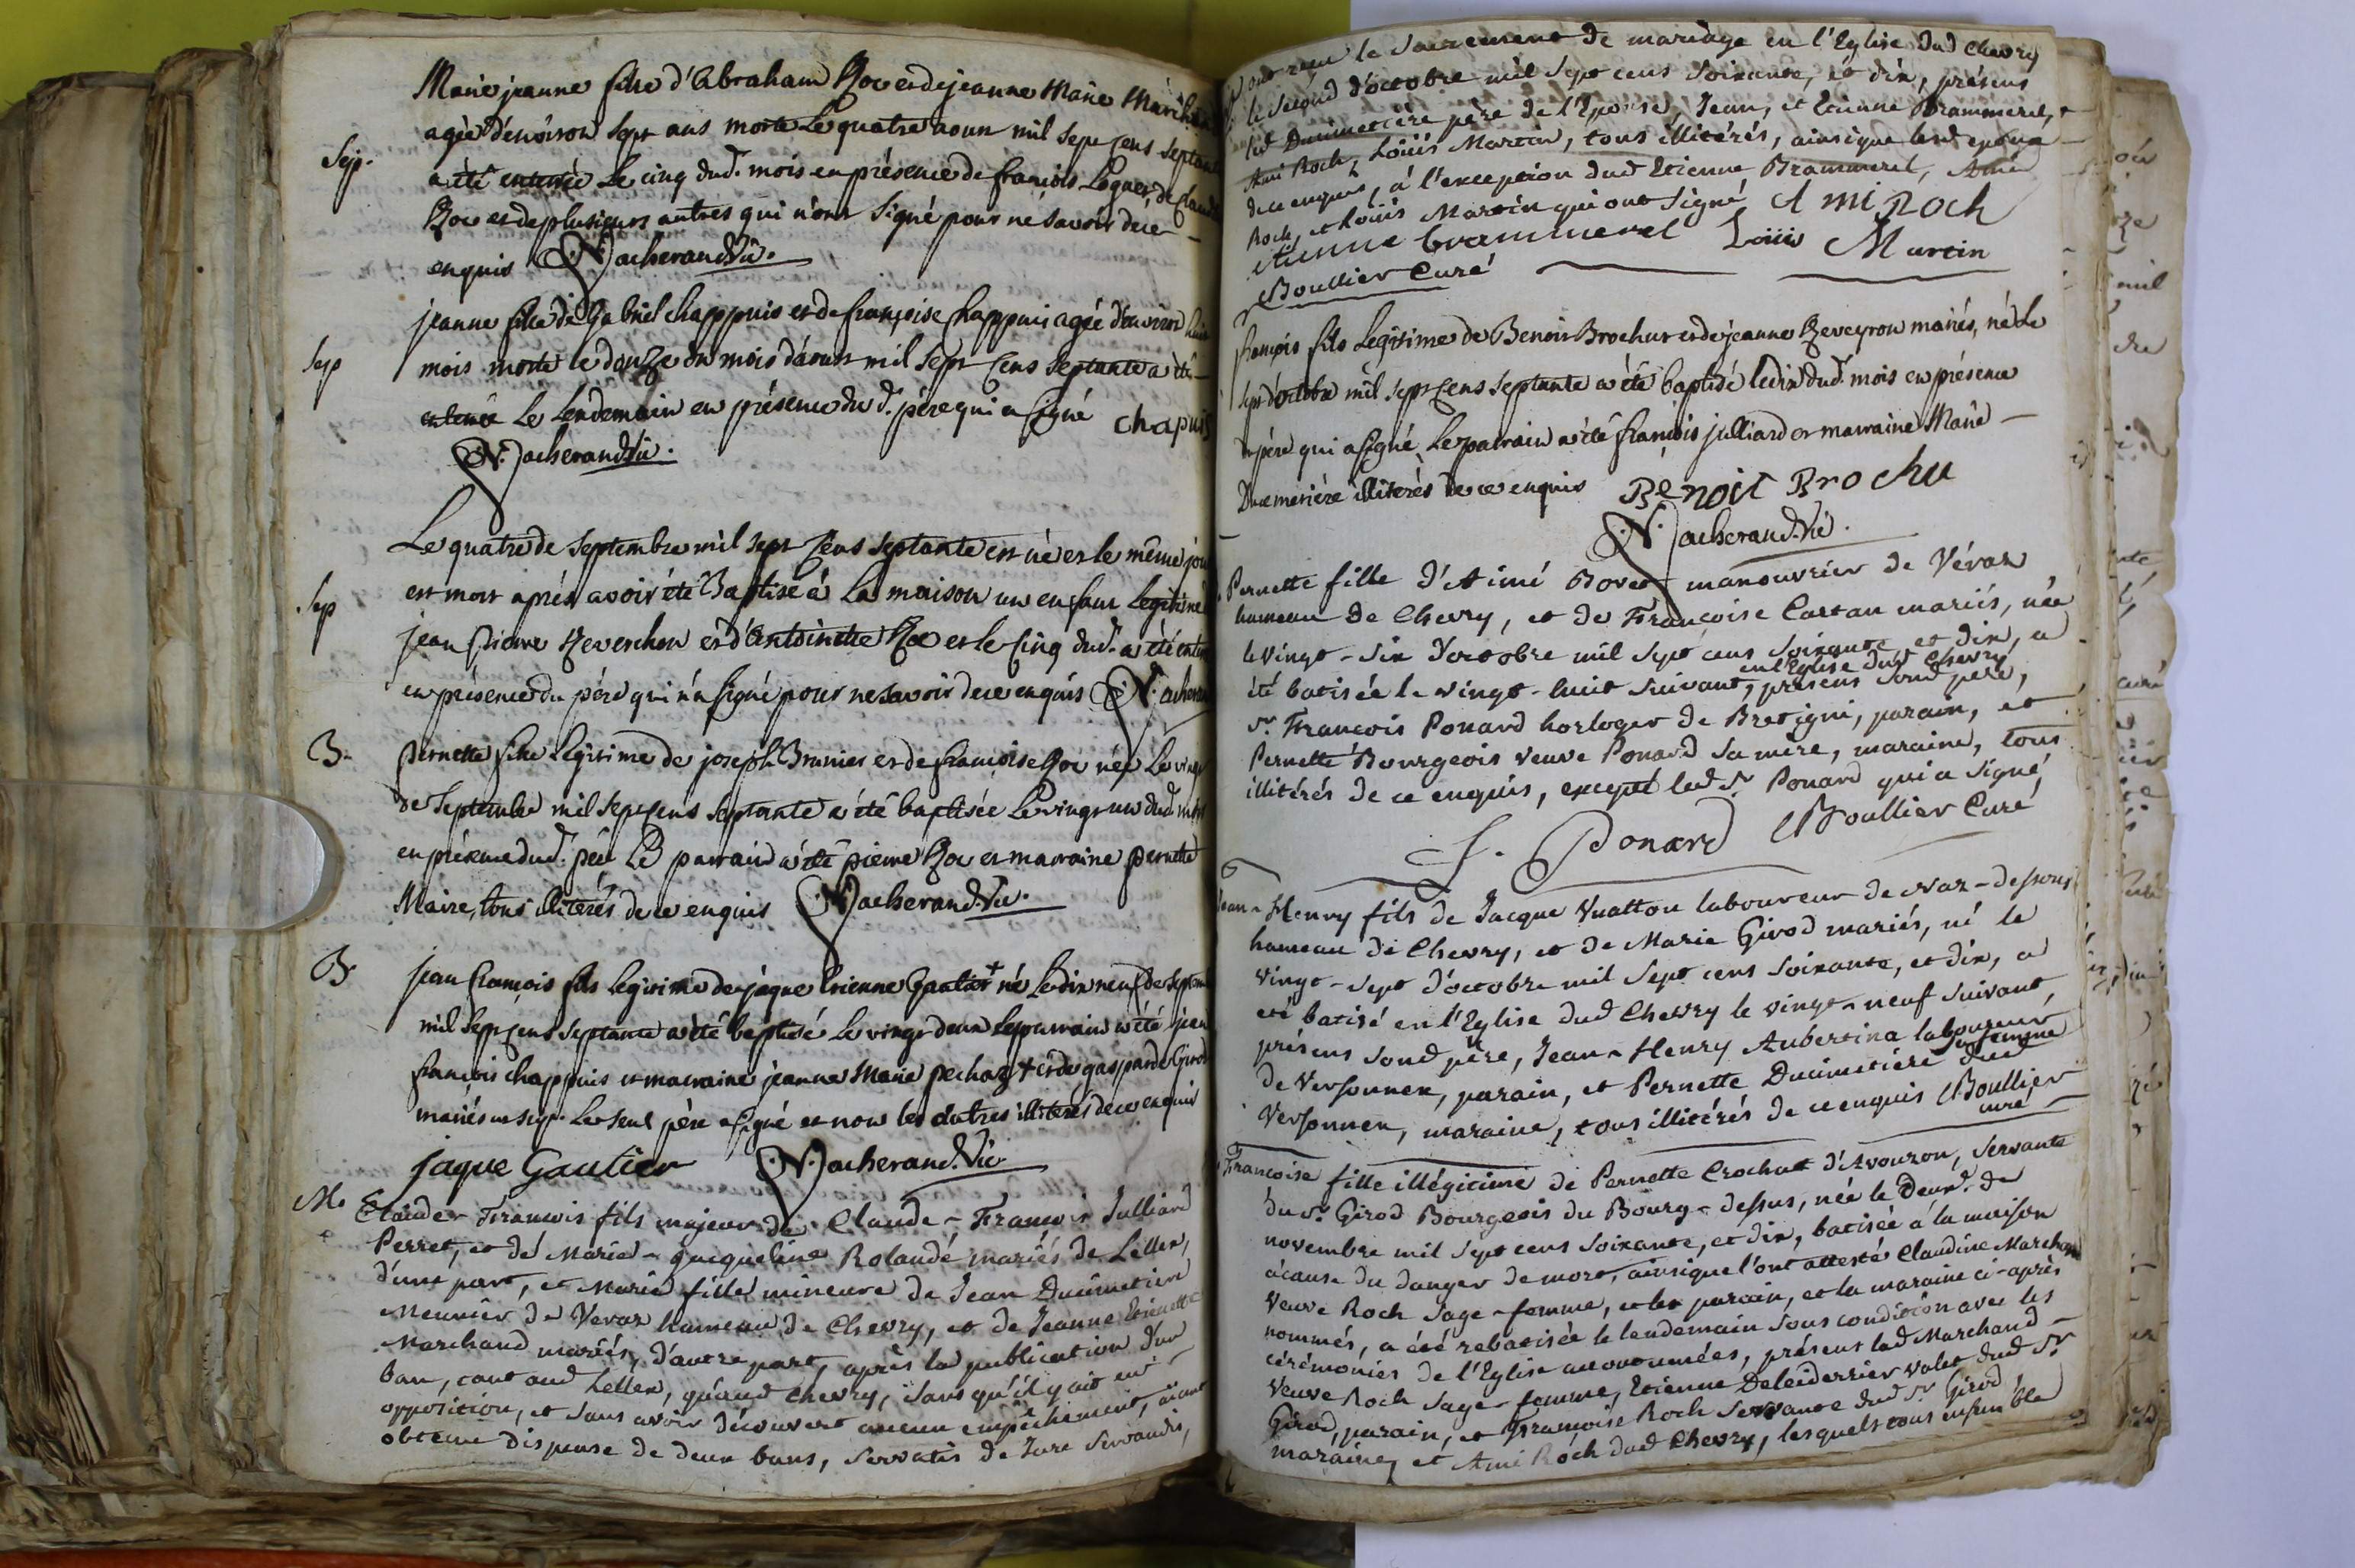 Marie jeanne fille d'Abraham Roc et de jeanne Marie
agée d'environ sept ans morte Le quatre aoust mil sept cens septante
Sep. a été enterrée Le cinq dud. mois en présence de françois de
Roc et de plusieurs autres qui n'ont signé pour ne savoir de ce
enquis N. Jacherand Vic.
jeanne fille de Gabriel Chappuis et de françoise Chappuis agée d'environ huit
Sep mois morte le douze du mois d'aoust mil sept cens septante a été
enterrée Le Lendemain en présence du d. père qui a signé chapuis
N. Jacherand Vic.
Le quatre de septembre mil sept cens septante est né et le même jour
Sep est mort après avoir été Baptisé à La maison un enfant Legitime
jean pierre Reverchon et d'Antoinette Roc et le cinq dud. a été
en présence du père qui n'a signé pour ne savoir de ce enquis N.
B. pernette fille Legitime de joseph Brunier et de françoise Roc née Le vingt
de septembre mil sept cens septante a été baptisée Le vingt un dud. mois
en présence dud. père Le parrain a été pierre Roc et marraine pernette
Maire, tous illiterés de ce enquis N. Jacherand Vic.
B jean françois fils Legitime de jaque Etienne Gautier + né Le dix neuf de septembre
mil sept cens septante a été baptisé Le vingt deux Le parrain a été jean
françois chappuis et marraine jeanne Marie pechaz + et de gasparde Girod
mariés Le seul père a signé et non les autres illiterés de ce enquis
jaque Gautier N. Jacherand Vic.
M. Claude-François fils majeur de Claude-François Julliard
Perret, et de Marie-Jacqueline Rolande mariés de Lellex,
d'une part, et Marie fille mineure de Jean Ducimetière
Meunier de Veraz hameau de Chevry, et de Jeanne Etiennette
Marchand mariés, d'autre part, après la publication d'un
ban, tant aud Lellex, qu'aud Chevry, sans qu'il y ait eu
opposition, et sans avoir découvert aucun empêchement, aiant
obtenu dispense de deux bans, servatis de Jure servandis,
ont reçu le Sacrement de mariage en l'Eglise dud Chevry
le second d'octobre mil sept cens soixante, et dix, présens
led Ducimetière père de l'Epouse, Jean, et Etienne Brammerel,
Ami Roch, Loüis Martin, tous illitérés, ainsi que lesd epoux
de ce enquis, à l'exception dud Etienne Brammerel, Ami
Roch, et Loüis Martin qui ont signé Ami Roch
etienne brammerel Loüis Martin
Boullier Curé
françois fils Legitime de Benoit Brochut et de jeanne Reveyron mariés, né Le
sept d'octobre mil sept cens septante a été baptisé le dix dud. mois en présence
du père qui a signé Le parrain a été françois julliard et marraine Marie
Ducimetière illiterés de ce enquis Benoit Brochu
N. Jacherand Vic.
Pernette fille d'Aimé Bovet manouvrier de Véraz
hameau de Chevry, et de Françoise Cartau mariés, née
le vingt-six d'octobre mil sept cens soixante, et dix, a
en l'Eglise dud Chevry
été batisée le vingt-huit suivant, présens sond père,
sr. François Ponard horloger de Bretigni, parain, et
Pernette Bourgeois veuve Ponard sa mère, maraine, tous
illitérés de ce enquis, excepté led Sr. Ponard qui a signé
f. Ponard Boullier Curé
Jean-Henry fils de Jacque Vuattou laboureur de Naz-dessous
hameau de Chevry, et de Marie Girod mariés, né le
vingt-sept d'octobre mil sept cens soixante, et dix, a
été batisé en l'Eglise dud Chevry le vingt-neuf suivant,
présens sond père, Jean-Henry Aubertina laboureur
de Versonnex, parain, et Pernette Ducimetière sa femme dud
Versonnex, maraine, tous illitérés de ce enquis Boullier
curé
Françoise fille illégitime de Pernette Crochat d'Avouzon, servante
du sr. Girod Bourgeois du Bourg-dessus, née le deux de
novembre mil sept cens soixante, et dix, batisée à la maison
à cause du danger de mort, ainsi que l'ont attesté Claudine Marchand
veuve Roch sage-femme, et les parain, et la maraine ci-après
nommés, a été rebatisée le lendemain sous condition avec les
cérémonies de l'Eglise accoutumées, présens lad Marchand
veuve Roch sage-femme, Etienne Deleiderrier valet dud Sr.
Girod, parain, et Françoise Roch servante dud Sr Girod,
maraine, et Ami Roch dud Chevry, lesquels tous ensemble